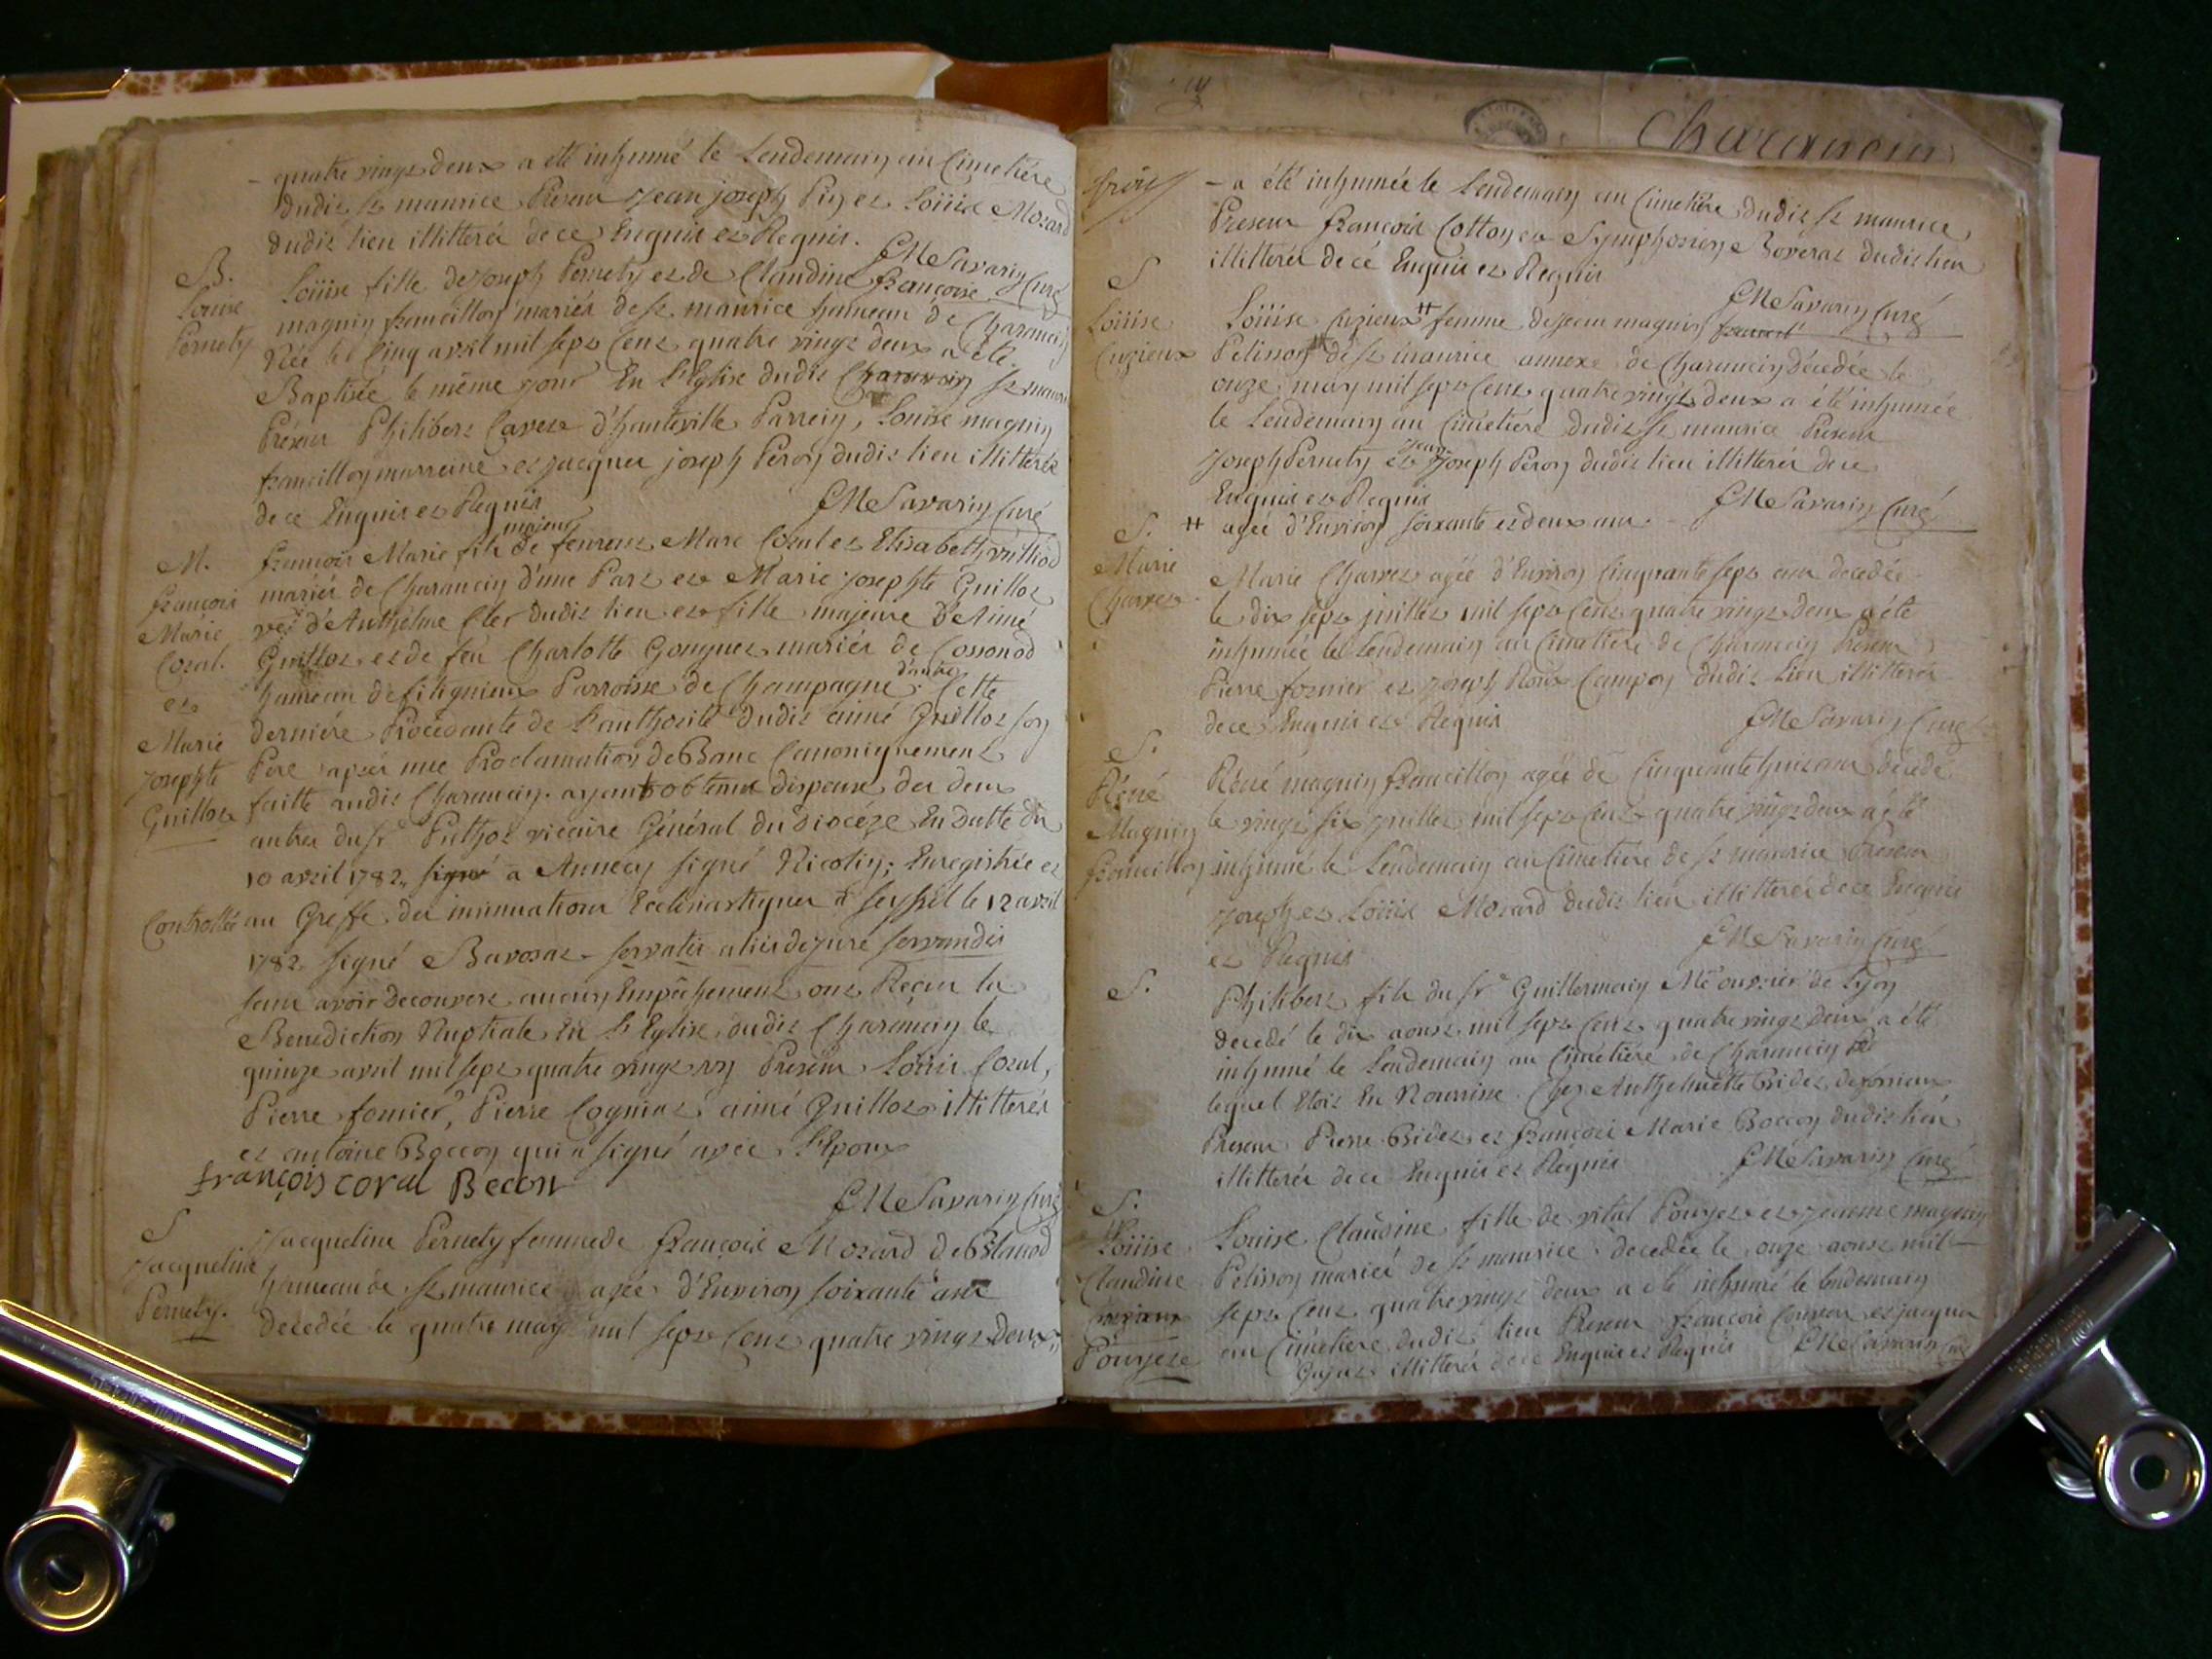 quatre vingt deux a été inhumé le Lendemain au Cimetiére
dudit st maurice Présens Jean joseph Pin et Loüis Mozard
dudit lieu illitterés de ce Enquis et Requis.
CM Savarin Curé
B.
Louise
Pernety
Loüise fille de Joseph Pernety et de Claudine françoise
magnin francillon mariés de st maurice hameau de Charancin
Née le Cinq avril mil sept Cent quatre vingt deux a été
Baptisée le même jour En l'Eglise dudit Charancin st maurice
Présens Philibert Cavet d'hauteville Parrein, Louise magnin
francillon marreine et jacques joseph Peron dudit lieu illitterés
de ce Enquis et Requis
CM Savarin Curé
M.
françois
Marie
Coral.
et
Marie
Josephte
Guillot
majeur
françois Marie fils de feu Marc Coral et Elisabeth
mariés de Charancin d'une Part et Marie Josephte Guillot
ve d'Anthelme dudit lieu et fille majeure d'Aimé
Guillot et de feu Charlotte Gouguet mariés de Cossonod
d'autre
hameau de fitignieux Parroisse de Champagne. Cette
derniére Procédante de l'authorité dudit aimé Guillot son
Pere apres une Proclamation de Banc Canoniquement
faitte audit Charancin. ayant obtenu dispense des deux
autres du sr Puthoz vicaire Général du diocéze En datte du
10 avril 1782, signé a Annecy signé Nicolin; Enregistrée et
Controllée au Greffe des insinuations Ecclesiastiques à seyssel le 12 avril
1782. signé Bavozat servatis aliis de jure servandis
sans avoir decouvert aucun Empêchement ont Reçu la
Benediction Nuptiale En l'Eglise dudit Charancin le
quinze avril mil sept quatre vingt Présens Loüis Coral,
Pierre fornier, Pierre Cogniat, aimé Guillot illitterés
et antoine Boccon qui a signé avec l'Epoux
françois coral Becon
CM Savarin Curé
S
Jacqueline
Pernety.
Jacqueline Pernety femme de françois Mozard de
hameau de st maurice agée d'Environ soixante ans
decedée le quatre may mil sept Cent quatre vingt deux
Charancin
- a été inhumée le Lendemain au Cimetiére dudit st maurice
Présens françois Cotton et Symphorien Boveraz dudit lieu
illitterés de cé Enquis et Requis
CM Savarin Curé
S
Loüise
Cuzieux
Loüise Cuzieux # femme de Jean magnin
Pelisson de st maurice annexe de Charancin décedée le
onze may mil sept Cent quatre vingt deux a été inhumée
le Lendemain au Cimétiére dudit st maurice Présens
Joseph Pernety et Jean Joseph Peron dudit lieu illitterés de ce
Enquis et Requis
CM Savarin Curé
# agée d'Environ soixante et deux ans
S.
Marie
Charvet
Marie Charvet agée d'Environ Cinquante sept ans decedée
le dix sept juillet mil sept Cent quatre vingt deux a été
inhumée le Lendemain au Cimetiére de Charancin Présens
Pierre fornier et Joseph Roux Campon dudit Lieu illitterés
de ce Enquis et Requis
CM Savarin Curé
S.
Réné
Magnin
francillon
Réné magnin francillon agée de Cinquante huit ans décédé
le vingt six juillet mil sept Cent quatre vingt deux a été
inhumé le Lendemain au Cimetiére de st maurice Présens
Joseph et Loüis Mozard dudit lieu illitterés de ce Enquis
et Requis
CM Savarin Curé
S.
Philibert fils du sr Guillermain Me ouvrier de Lyon
decedé le dix aoust mil sept Cent quatre vingt deux a été
inhumé le Lendemain au Cimétiére de Charancin
lequel Etoit En Nourrice Chez Anthelmette Bridet
Présens Pierre Bridet et françois Marie Boccon dudit lieu
illitterés de ce Enquis et Requis
CM Savarin Curé
S.
Loüise
Claudine
Pourjet
Louise Claudine fille de vital Pourjet et Jeanne magnin
Pelisson mariés de st maurice decedée le onze aoust mil
sept Cent quatre vingt deux a été inhumé le lendemain
au Cimetiére dudit lieu Présens françois et jacques
Gujat illitterés de ce Enquis et Requis CM Savarin Curé